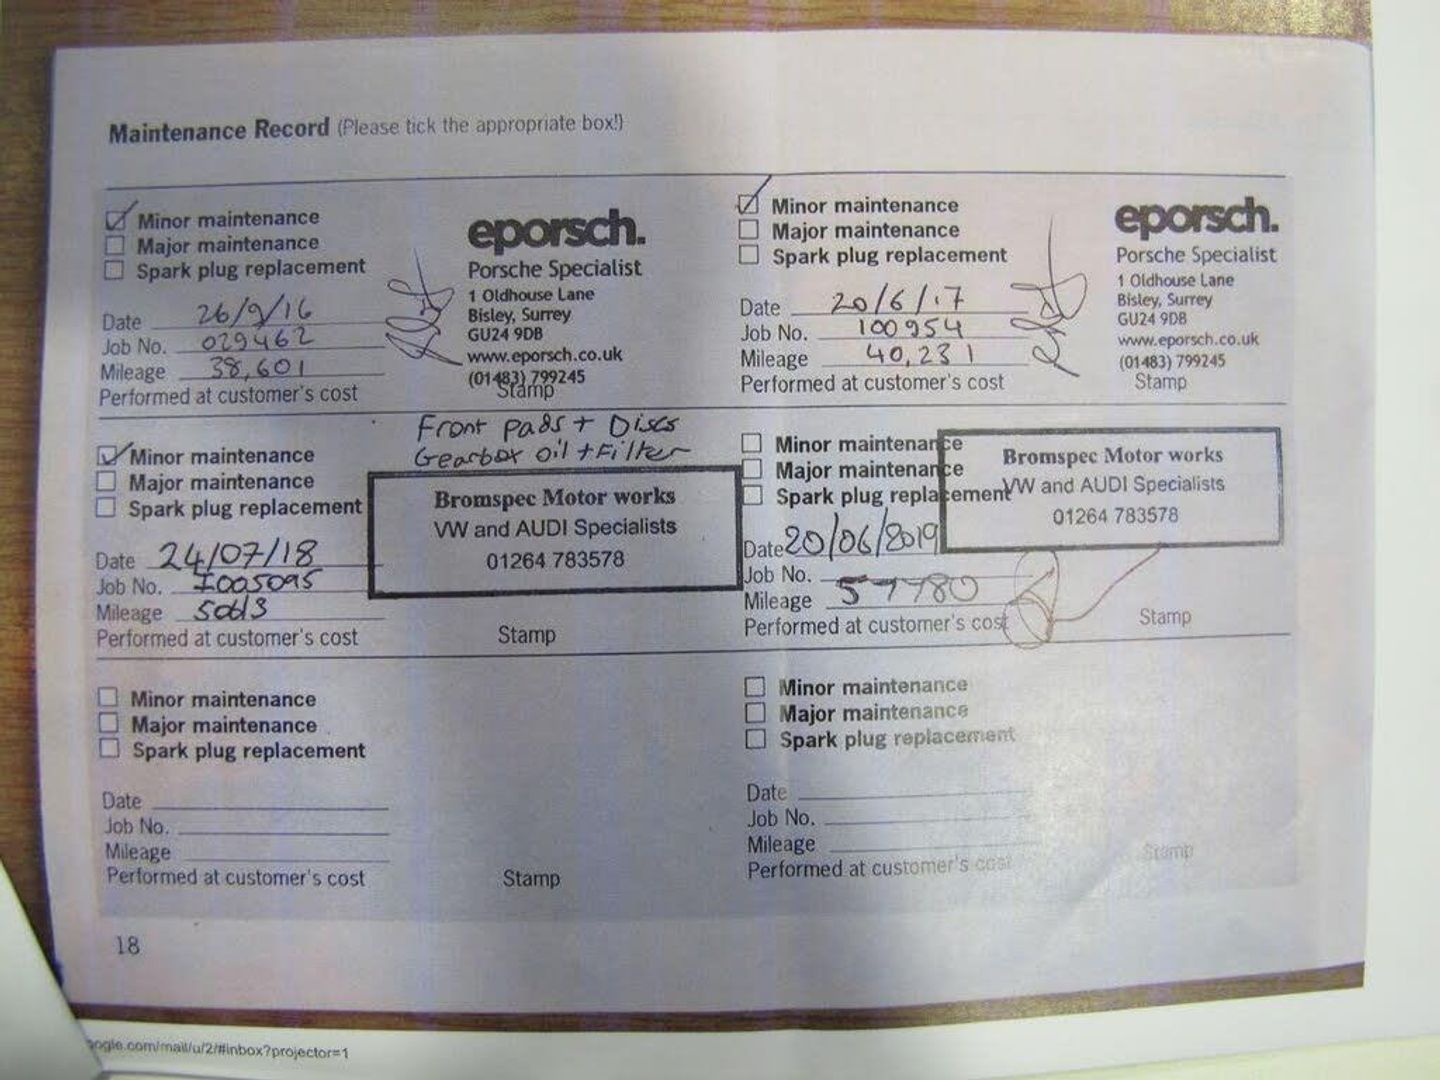 Maintenance Record (Please tick the appropriate box!)
Minor maintenance
Major maintenance
Spark plug replacement
Date 26/9/16
Job No. 029462
Mileage 38,601
Performed at customer's cost
eporsch.
Porsche Specialist
1 Oldhouse Lane
Bisley, Surrey
GU24 9DB
www.eporsch.co.uk
(01483) 799245
Stamp
Minor maintenance
Major maintenance
Spark plug replacement
Date 20/6/17
Job No. 100954
Mileage 40,231
Performed at customer's cost
eporsch.
Porsche Specialist
1 Oldhouse Lane
Bisley, Surrey
GU24 9DB
www.eporsch.co.uk
(01483) 799245
Stamp
Minor maintenance
Major maintenance
Spark plug replacement
Date 24/07/18
Job No. I005095
Mileage
Performed at customer's cost
Front pads + Discs
Gearbox oil + Filter
Bromspec Motor works
VW and AUDI Specialists
01264 783578
Stamp
Minor maintenance
Major maintenance
Spark plug replacement
Date 20/06/2019
Job No.
Mileage 57780
Performed at customer's cost
Bromspec Motor works
VW and AUDI Specialists
01264 783578
Stamp
Minor maintenance
Major maintenance
Spark plug replacement
Date
Job No.
Mileage
Performed at customer's cost
Stamp
Minor maintenance
Major maintenance
Spark plug replacement
Date
Job No.
Mileage
Performed at customer's cost
Stamp
18
oogle.com/mail/u/2/#inbox?projector=1